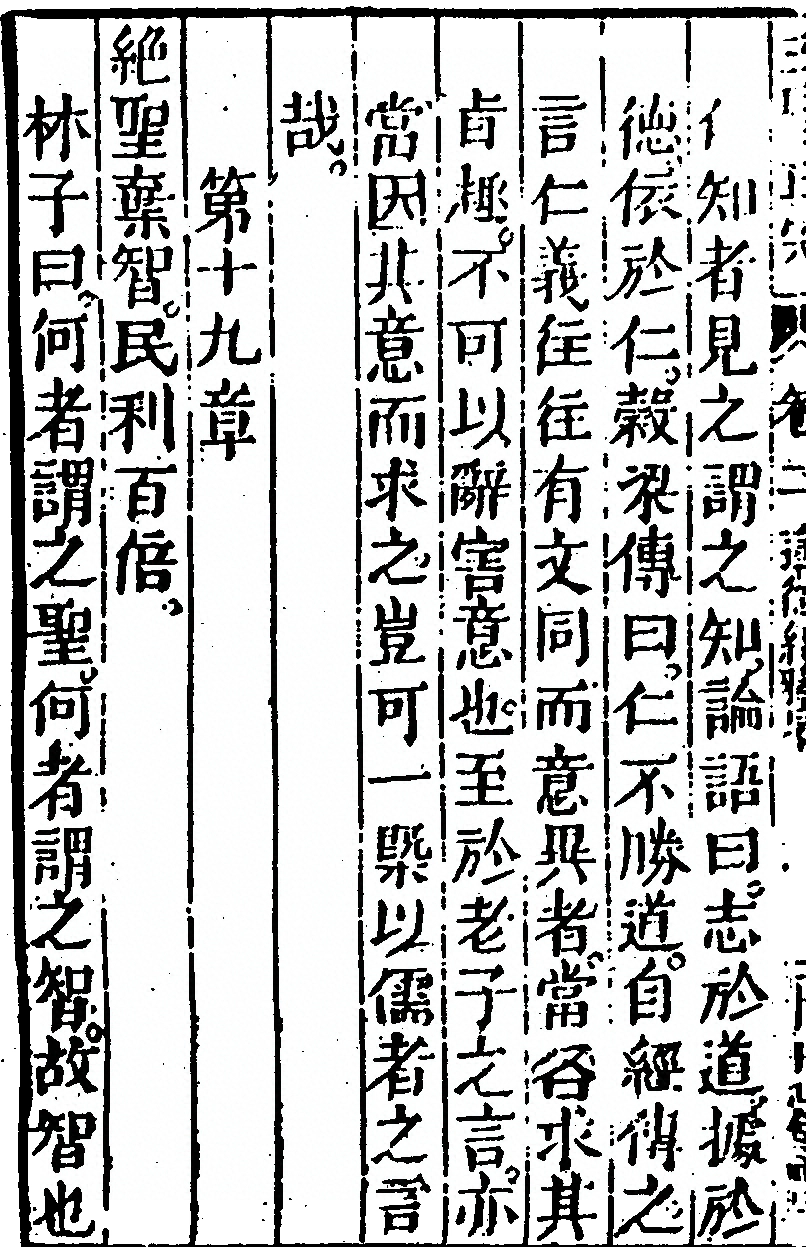 卷二
知者見之謂之知。論語曰。志於道。據於
德。依於仁。穀梁傳曰。仁不勝道。自經傳之
言仁義往往有文同而意異者。當各求其
旨趣。不可以辭害意也。至於老子之言。亦
當因其意而求之。豈可一槩以儒者之言
哉。
第十九章
絕聖棄智。民利百倍。
林子曰。何者謂之聖。何者謂之智。故智也